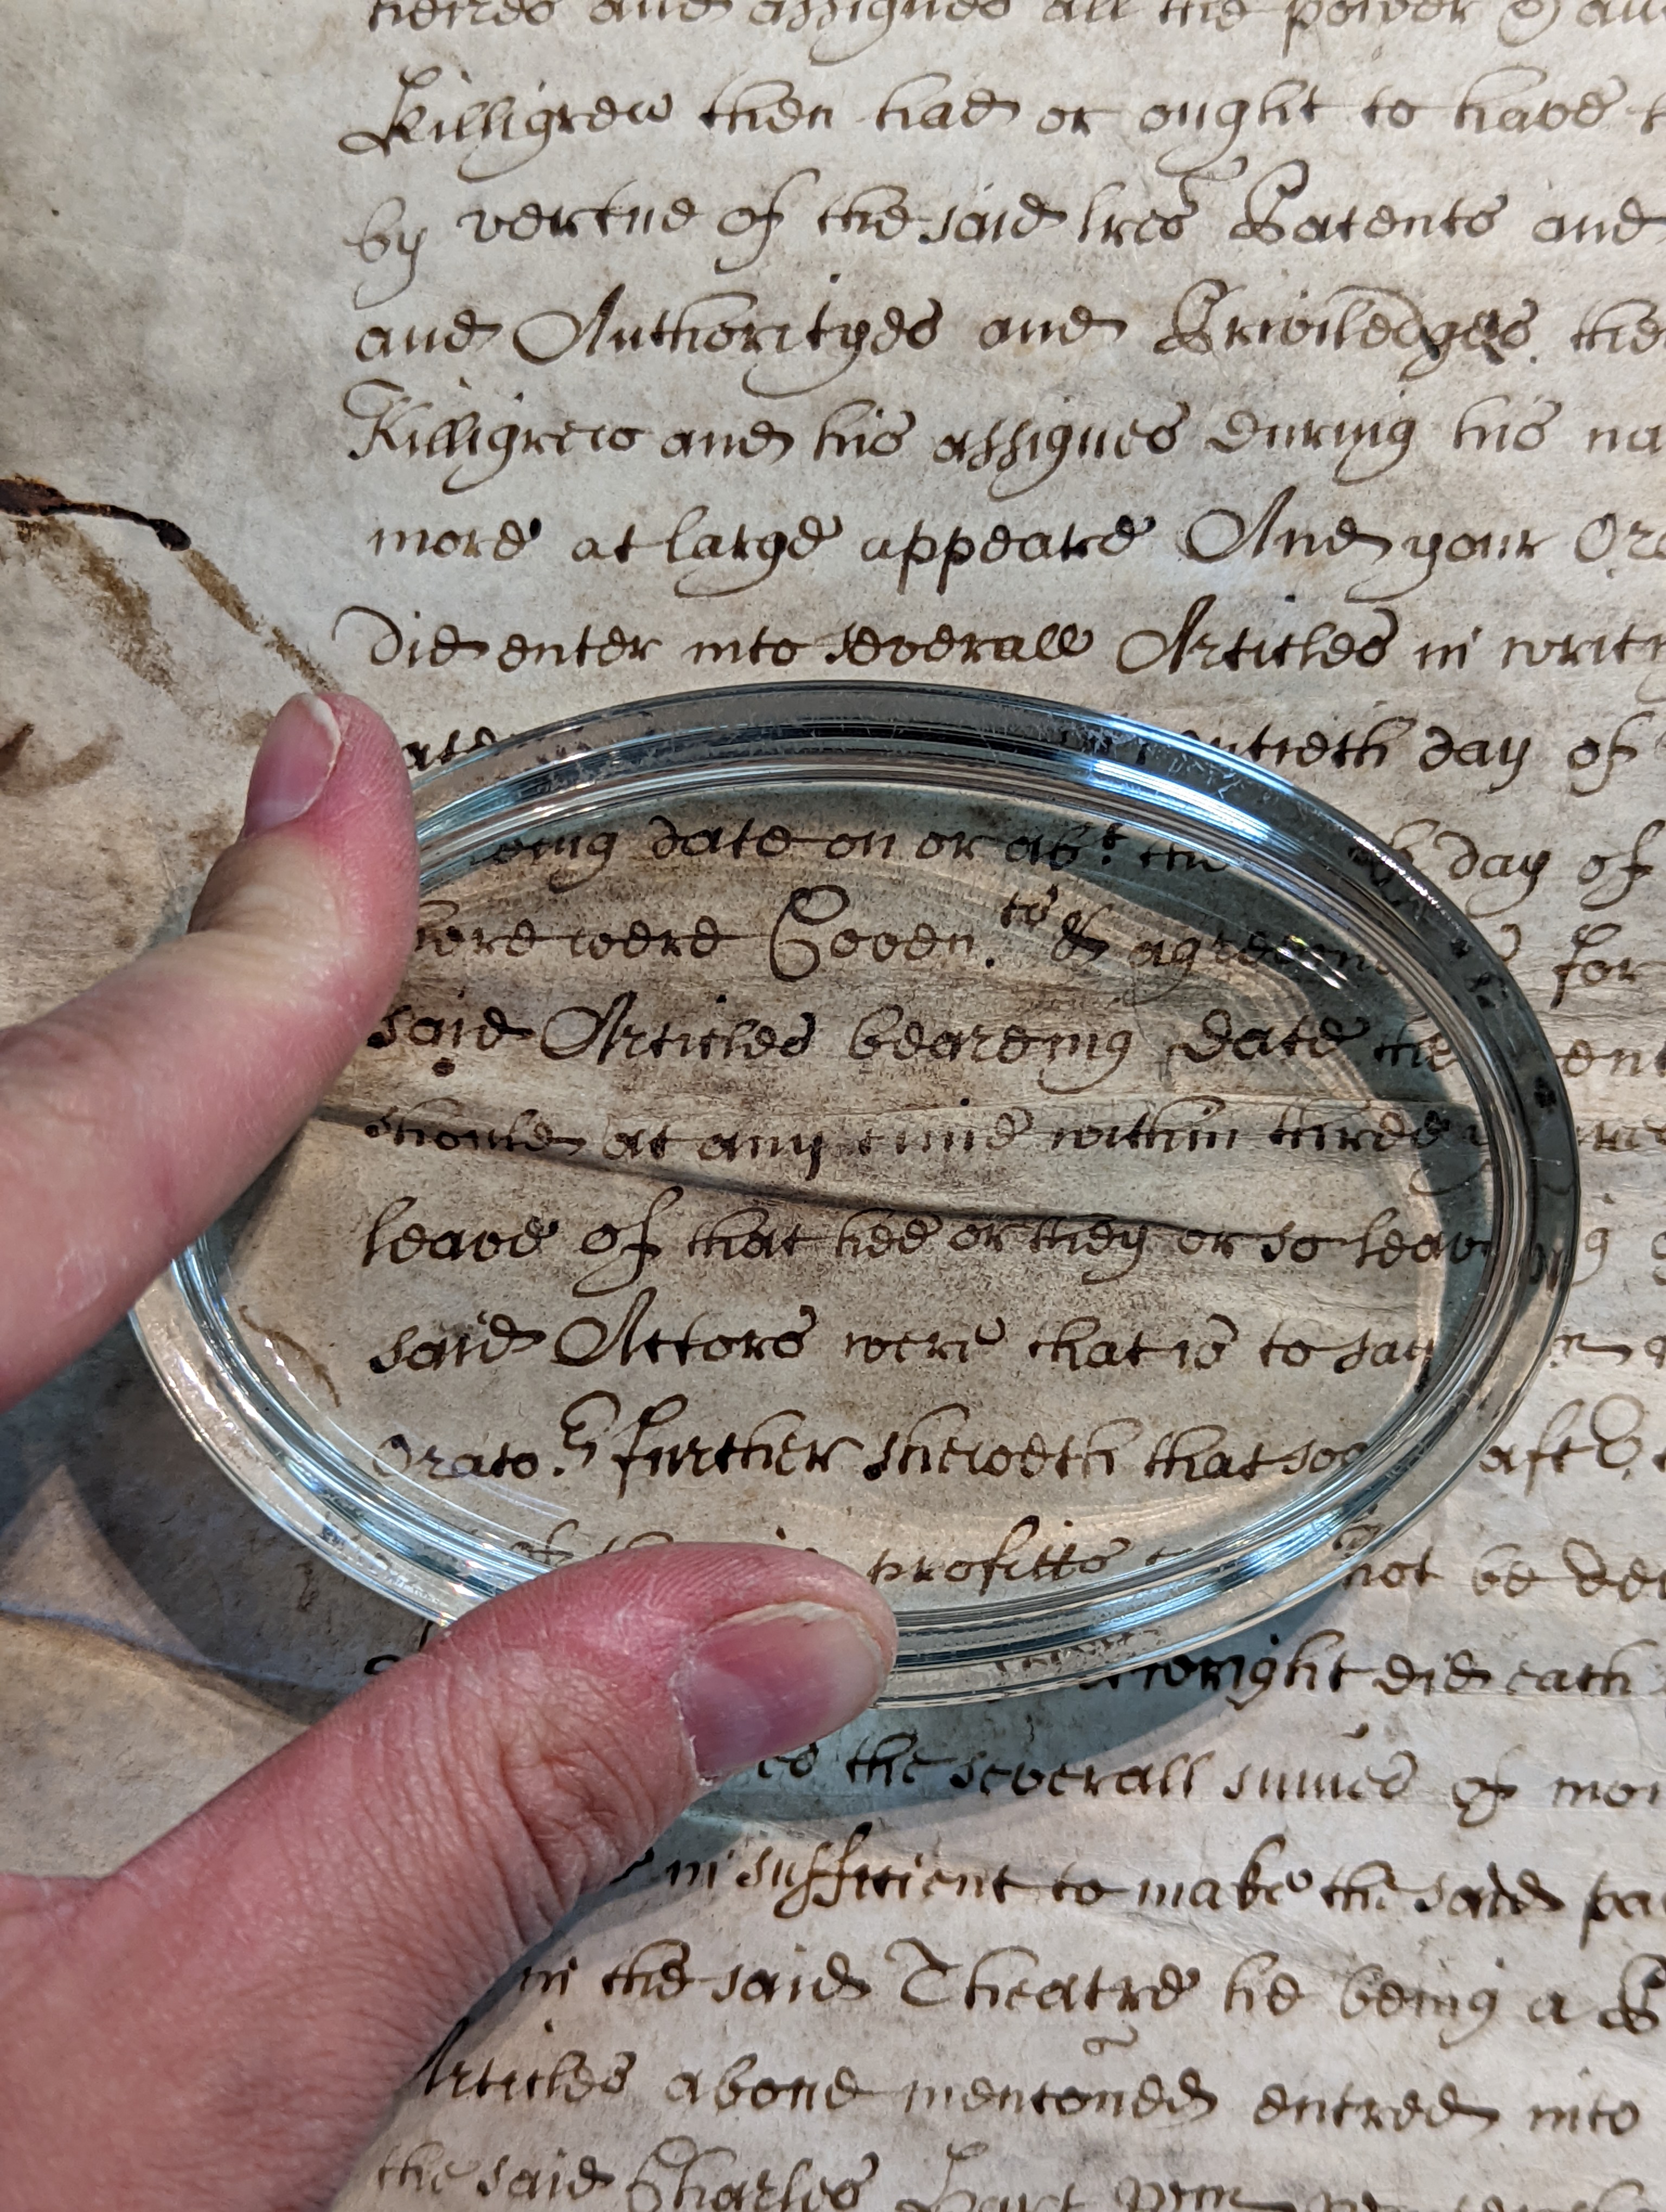 heires and assignes all the power & au
Killigrew then had or ought to have t
by vertue of the said lres Patents and
and Authorityes and Priviledges the
Killigrew and his assignes during his na
more at large appeare And your Ora
did enter into severall Articles in writ
day of
date on or ab.t the day of
were Coven.ts & for
said Articles beareing date the
should at any time within three
leave of that hee or they or so leaving
said Actors were that is to say
Orato.rs further sheweth that soo aft
of profitts not be de
did each
the severall summes of mo
insufficient to make the said pa
in the said Theatre he being a
Articles above mentoned entred into
the said Charles Hart